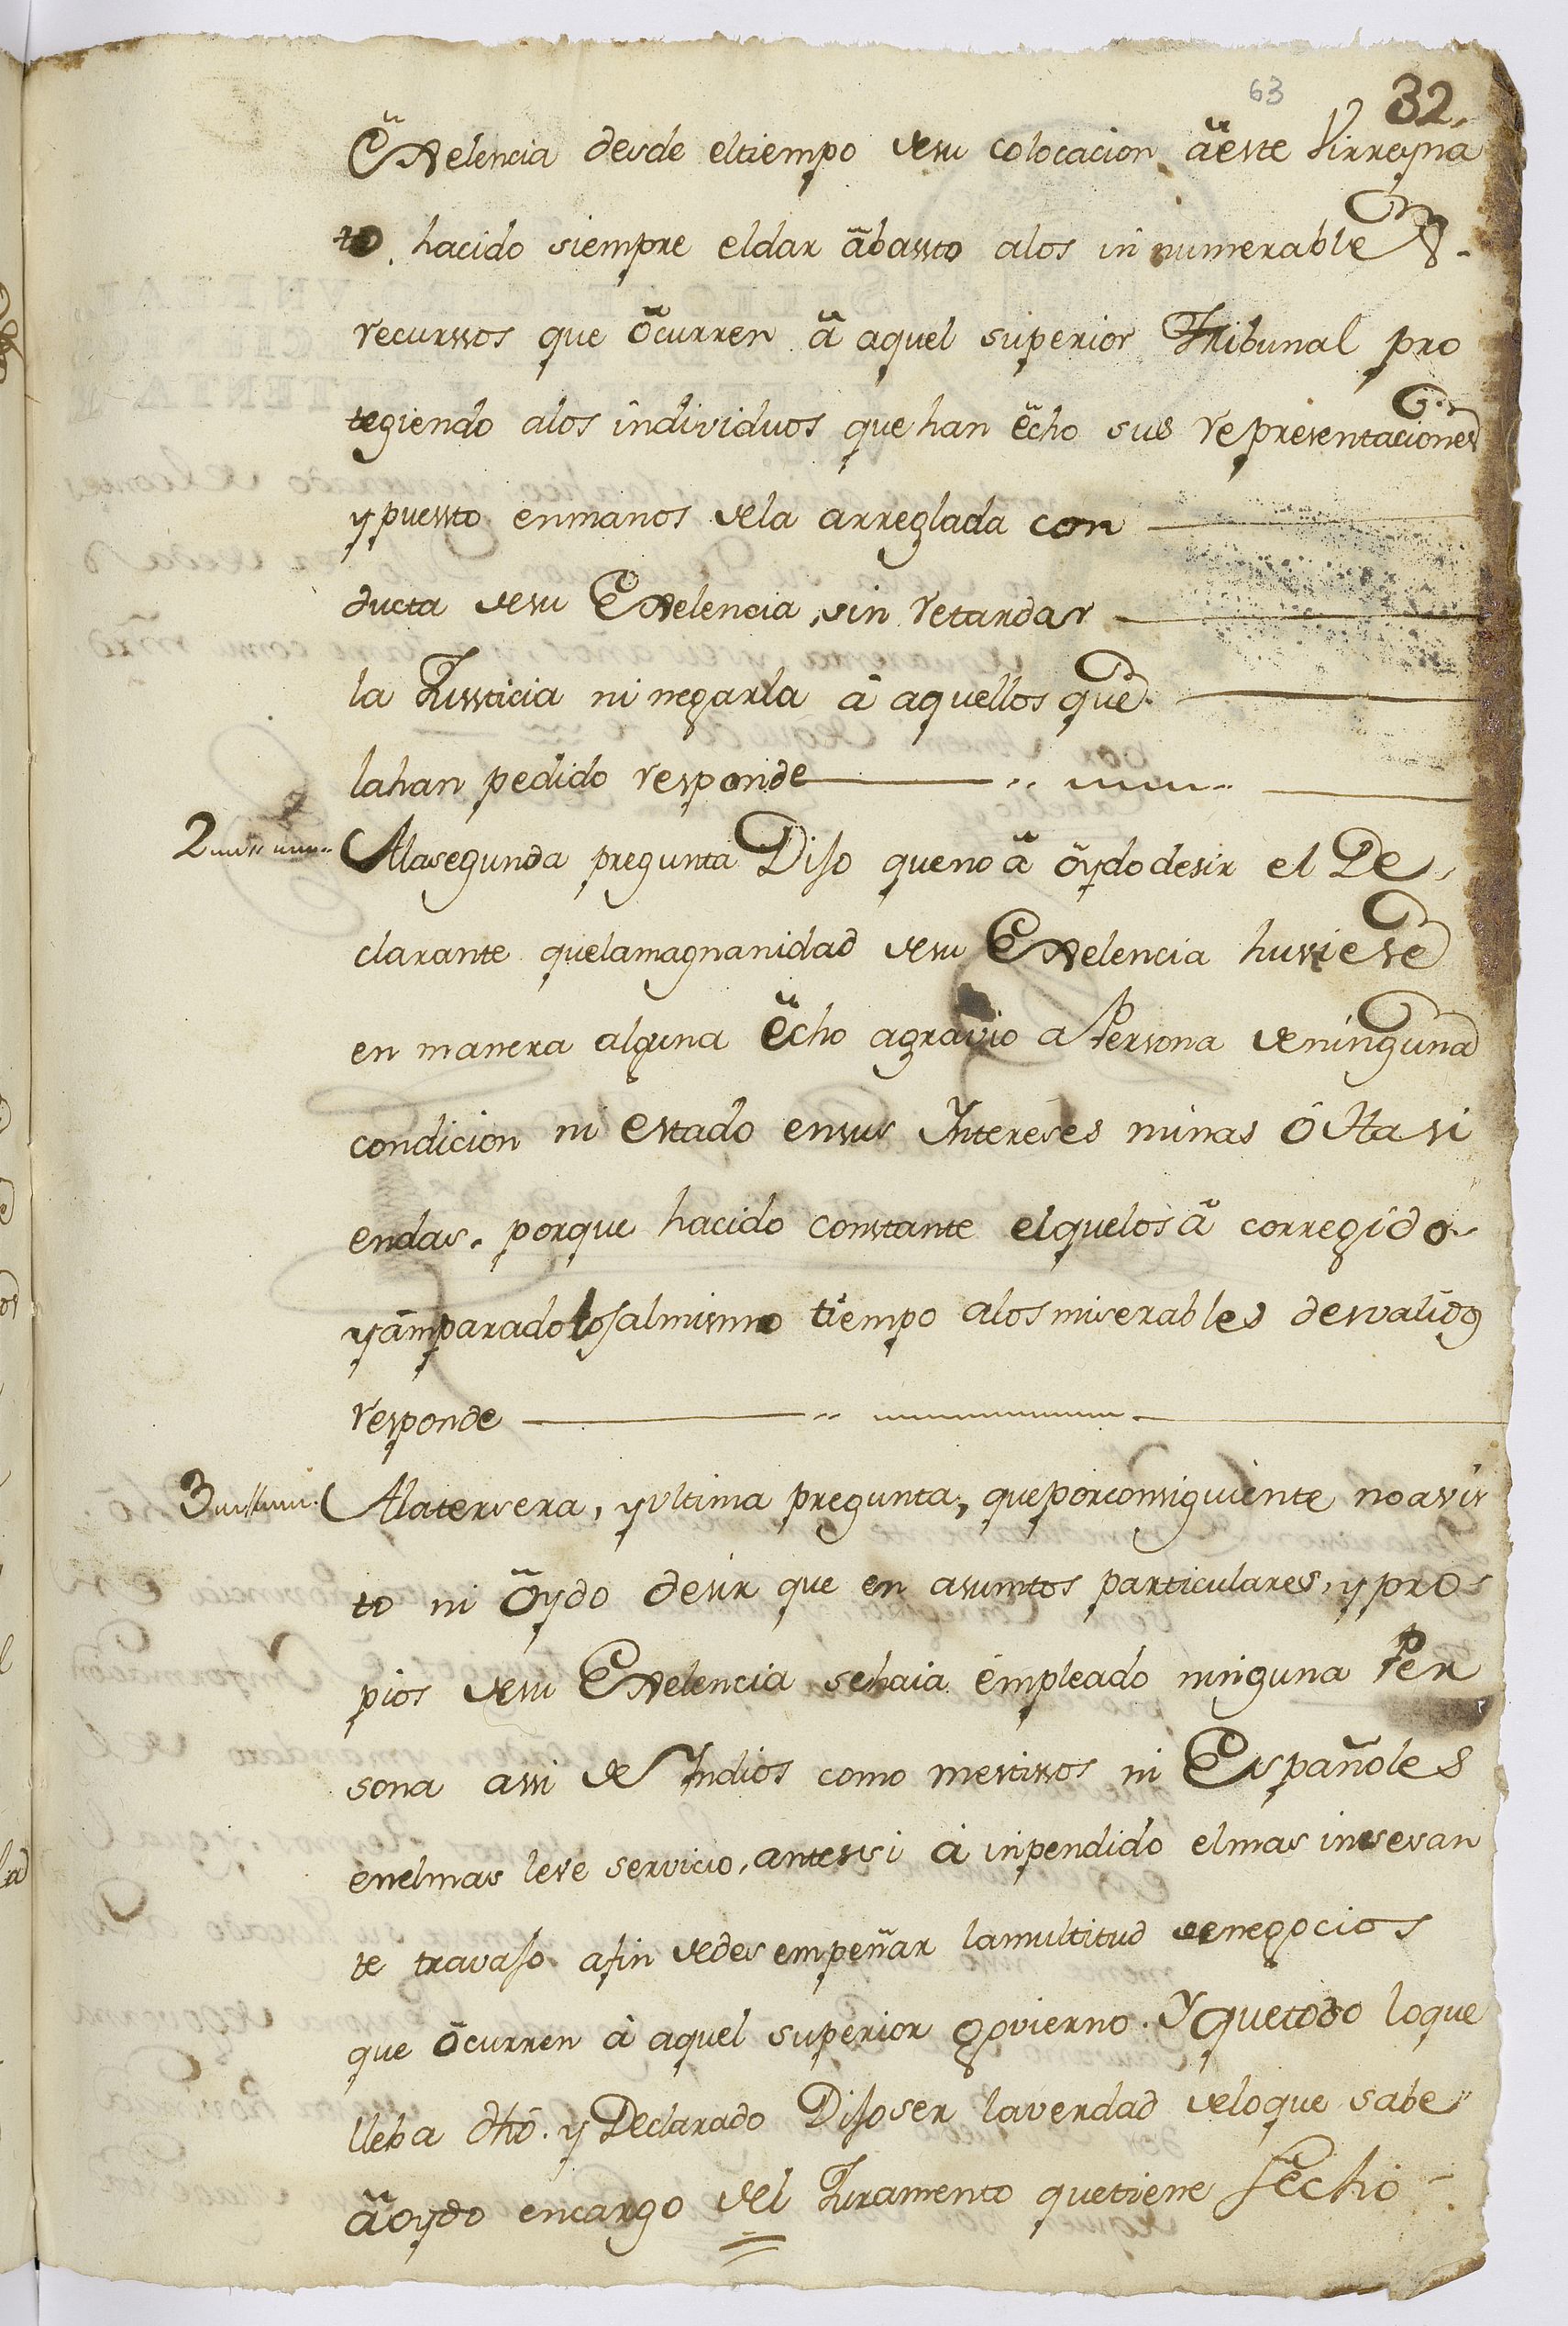 63 32.
Exelencia desde eltiempo desu colocacion, äeste Virreyna
to, hacido siempre eldar äbasto alos innumerables
recursos que öcurren ä aquel superior Tribunal pro
tegiendo alos individuos que han ëcho sus representaciones
y puesto enmanos dela arreglada con
ducta desu Exelencia, sin retardar
la Justicia ni negarla â aquellos que
lahan pedido responde
2 Alasegunda pregunta Dijo queno ä öydo desir el De
clarante quelamagnanidad desu Exelencia huviese
en manera alguna ëcho agravio a Persona deninguna
condicion ni estado ensus Intereses minas ô Hasi
endas. porque hacido constante elquelos ä corregido
yämparadolos almismo tiempo alos miserables desvalidos
responde
3 Alatersera, yultima pregunta, queporconsiguiente no avis
to ni öydo desir que en asumtos particulares, y pro
pios desu Exelencia sehaia êmpleado ninguna Per
sona assi de Indios como mestissos ni Españoles
enelmas leve servicio, antessi â inpendido elmas insesan
te travajo afin dedesempeñar lamultitud denegocios
que öcurren â aquel superior govierno. Yquetodo loque
lleba dho. y Declarado Dijoser laverdad deloque sabe
äoydo encargo del Juramento quetiene fecho